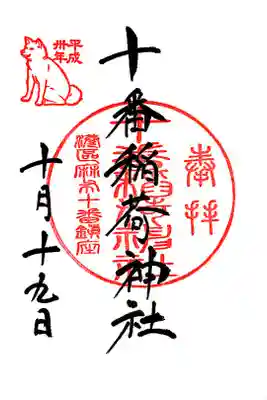 奉拝
十番稲荷神社
港区麻布十番鎮座
平成
卅年
十月十九日